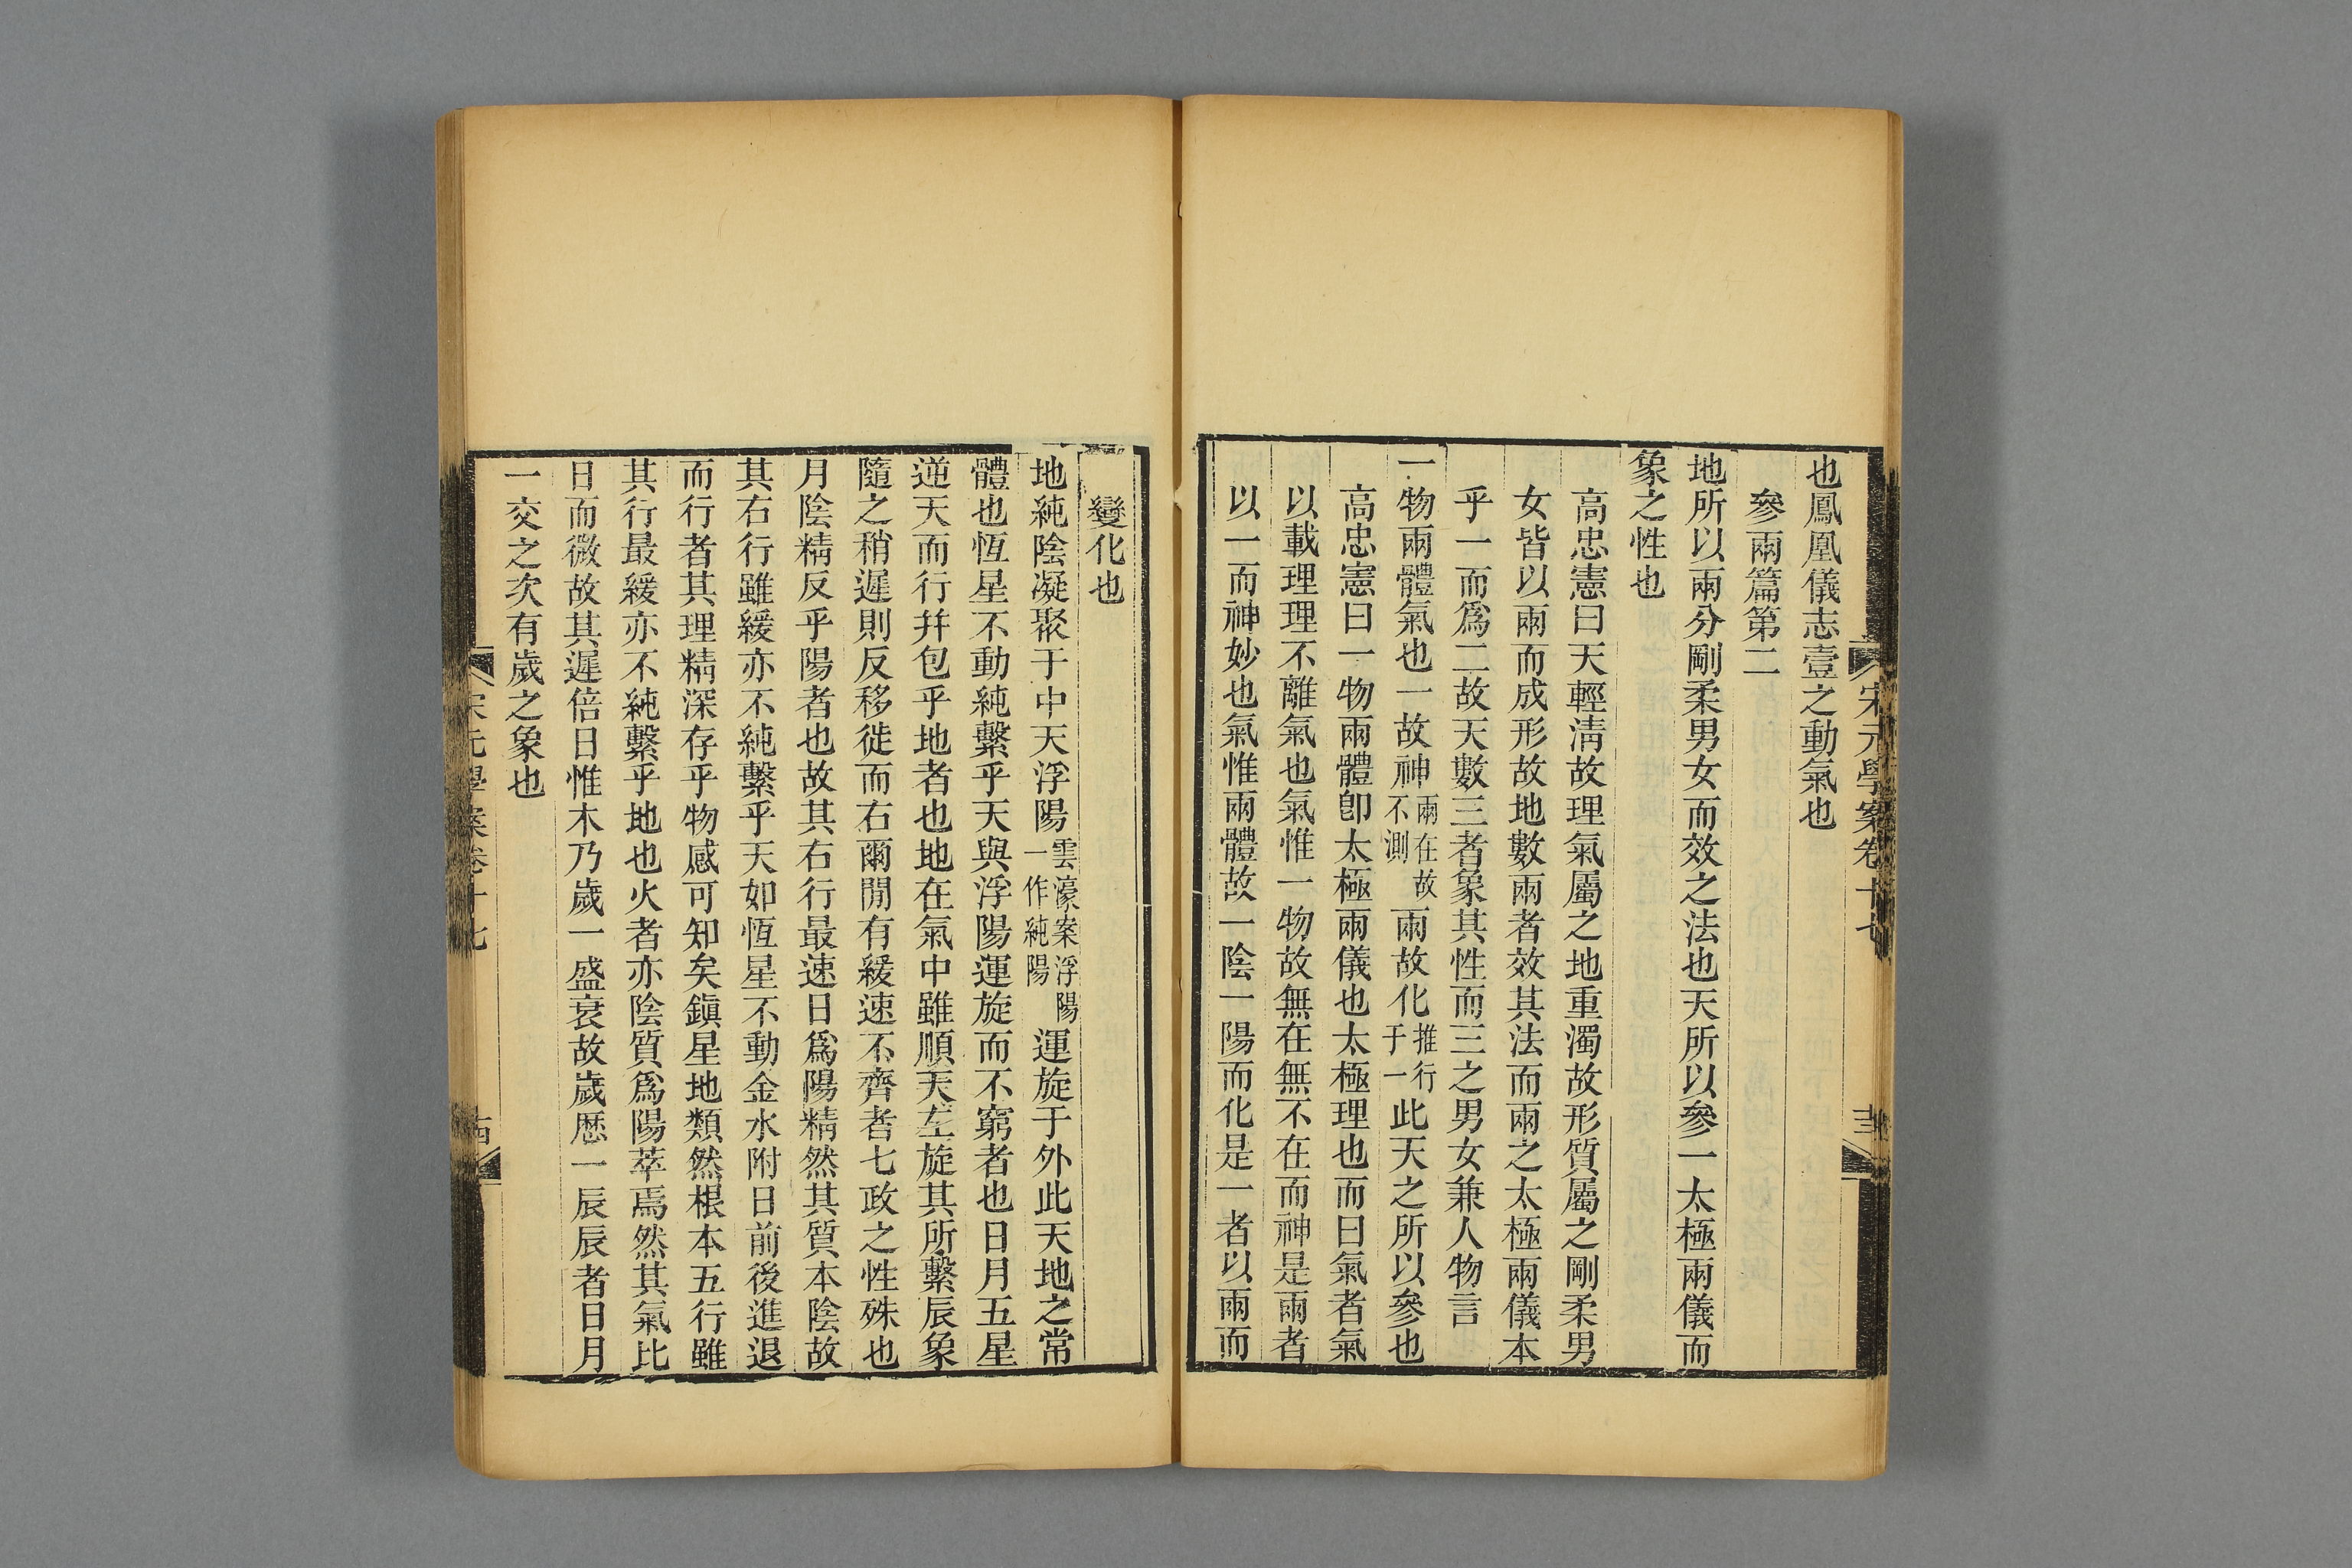 宋元學案卷十七
也鳳凰儀志壹之動氣也
參兩篇第二
地所以兩分剛柔男女而效之法也天所以參一太極兩儀而
象之性也
高忠憲曰天輕清故理氣屬之地重濁故形質屬之剛柔男
女皆以兩而成形故地數兩者效其法而兩之太極兩儀本
乎一而爲二故天數三者象其性而三之男女兼人物言
一物兩體氣也一故神兩在故不測兩故化推行于一此天之所以參也
高忠憲曰一物兩體卽太極兩儀也太極理也而曰氣者氣
以載理理不離氣也氣惟一物故無在無不在而神是兩者
以一而神妙也氣惟兩體故一陰一陽而化是一者以兩而
變化也
地純陰凝聚于中天浮陽雲濠案浮陽一作純陽運旋于外此天地之常
體也恆星不動純繫乎天與浮陽運旋而不窮者也日月五星
逆天而行幷包乎地者也地在氣中雖順天左旋其所繫辰象
隨之稍遲則反移徙而右爾閒有緩速不齊者七政之性殊也
月陰精反乎陽者也故其右行最速日爲陽精然其質本陰故
其右行雖緩亦不純繫乎天如恆星不動金水附日前後進退
而行者其理精深存乎物感可知矣鎭星地類然根本五行雖
其行最緩亦不純繫乎地也火者亦陰質爲陽萃焉然其氣比
日而微故其遲倍日惟木乃歲一盛衰故歲歷一辰辰者日月
一交之次有歲之象也
宋元學案卷十七